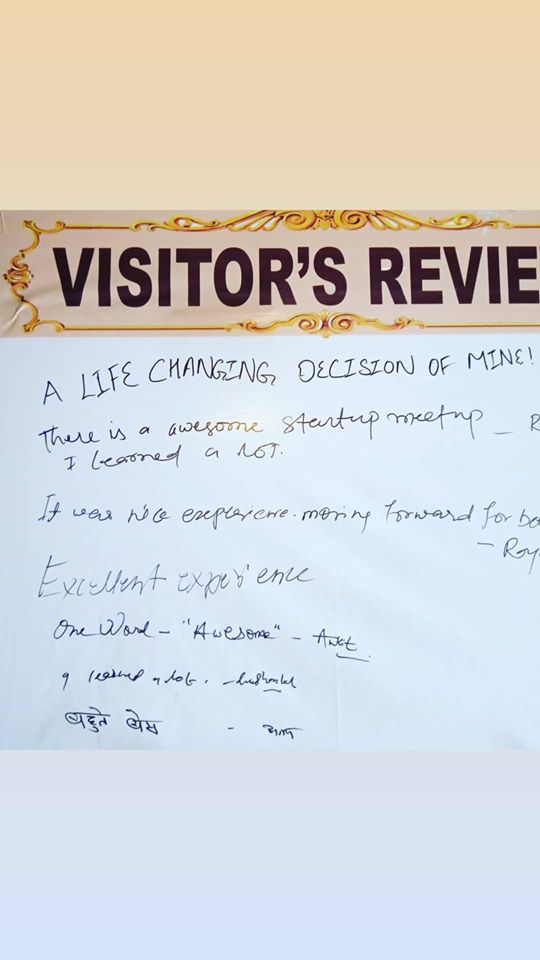 VISITOR'S REVIE
A LIFE CHANGING DECISION OF MINE!
There is a awesome startup meetup _ R
I learned a lot.
It was nice experience. moving forward for be
- Roy
Excellent experience
One Word - "Awesome" -
I learned a lot. -
बहुते बेस -